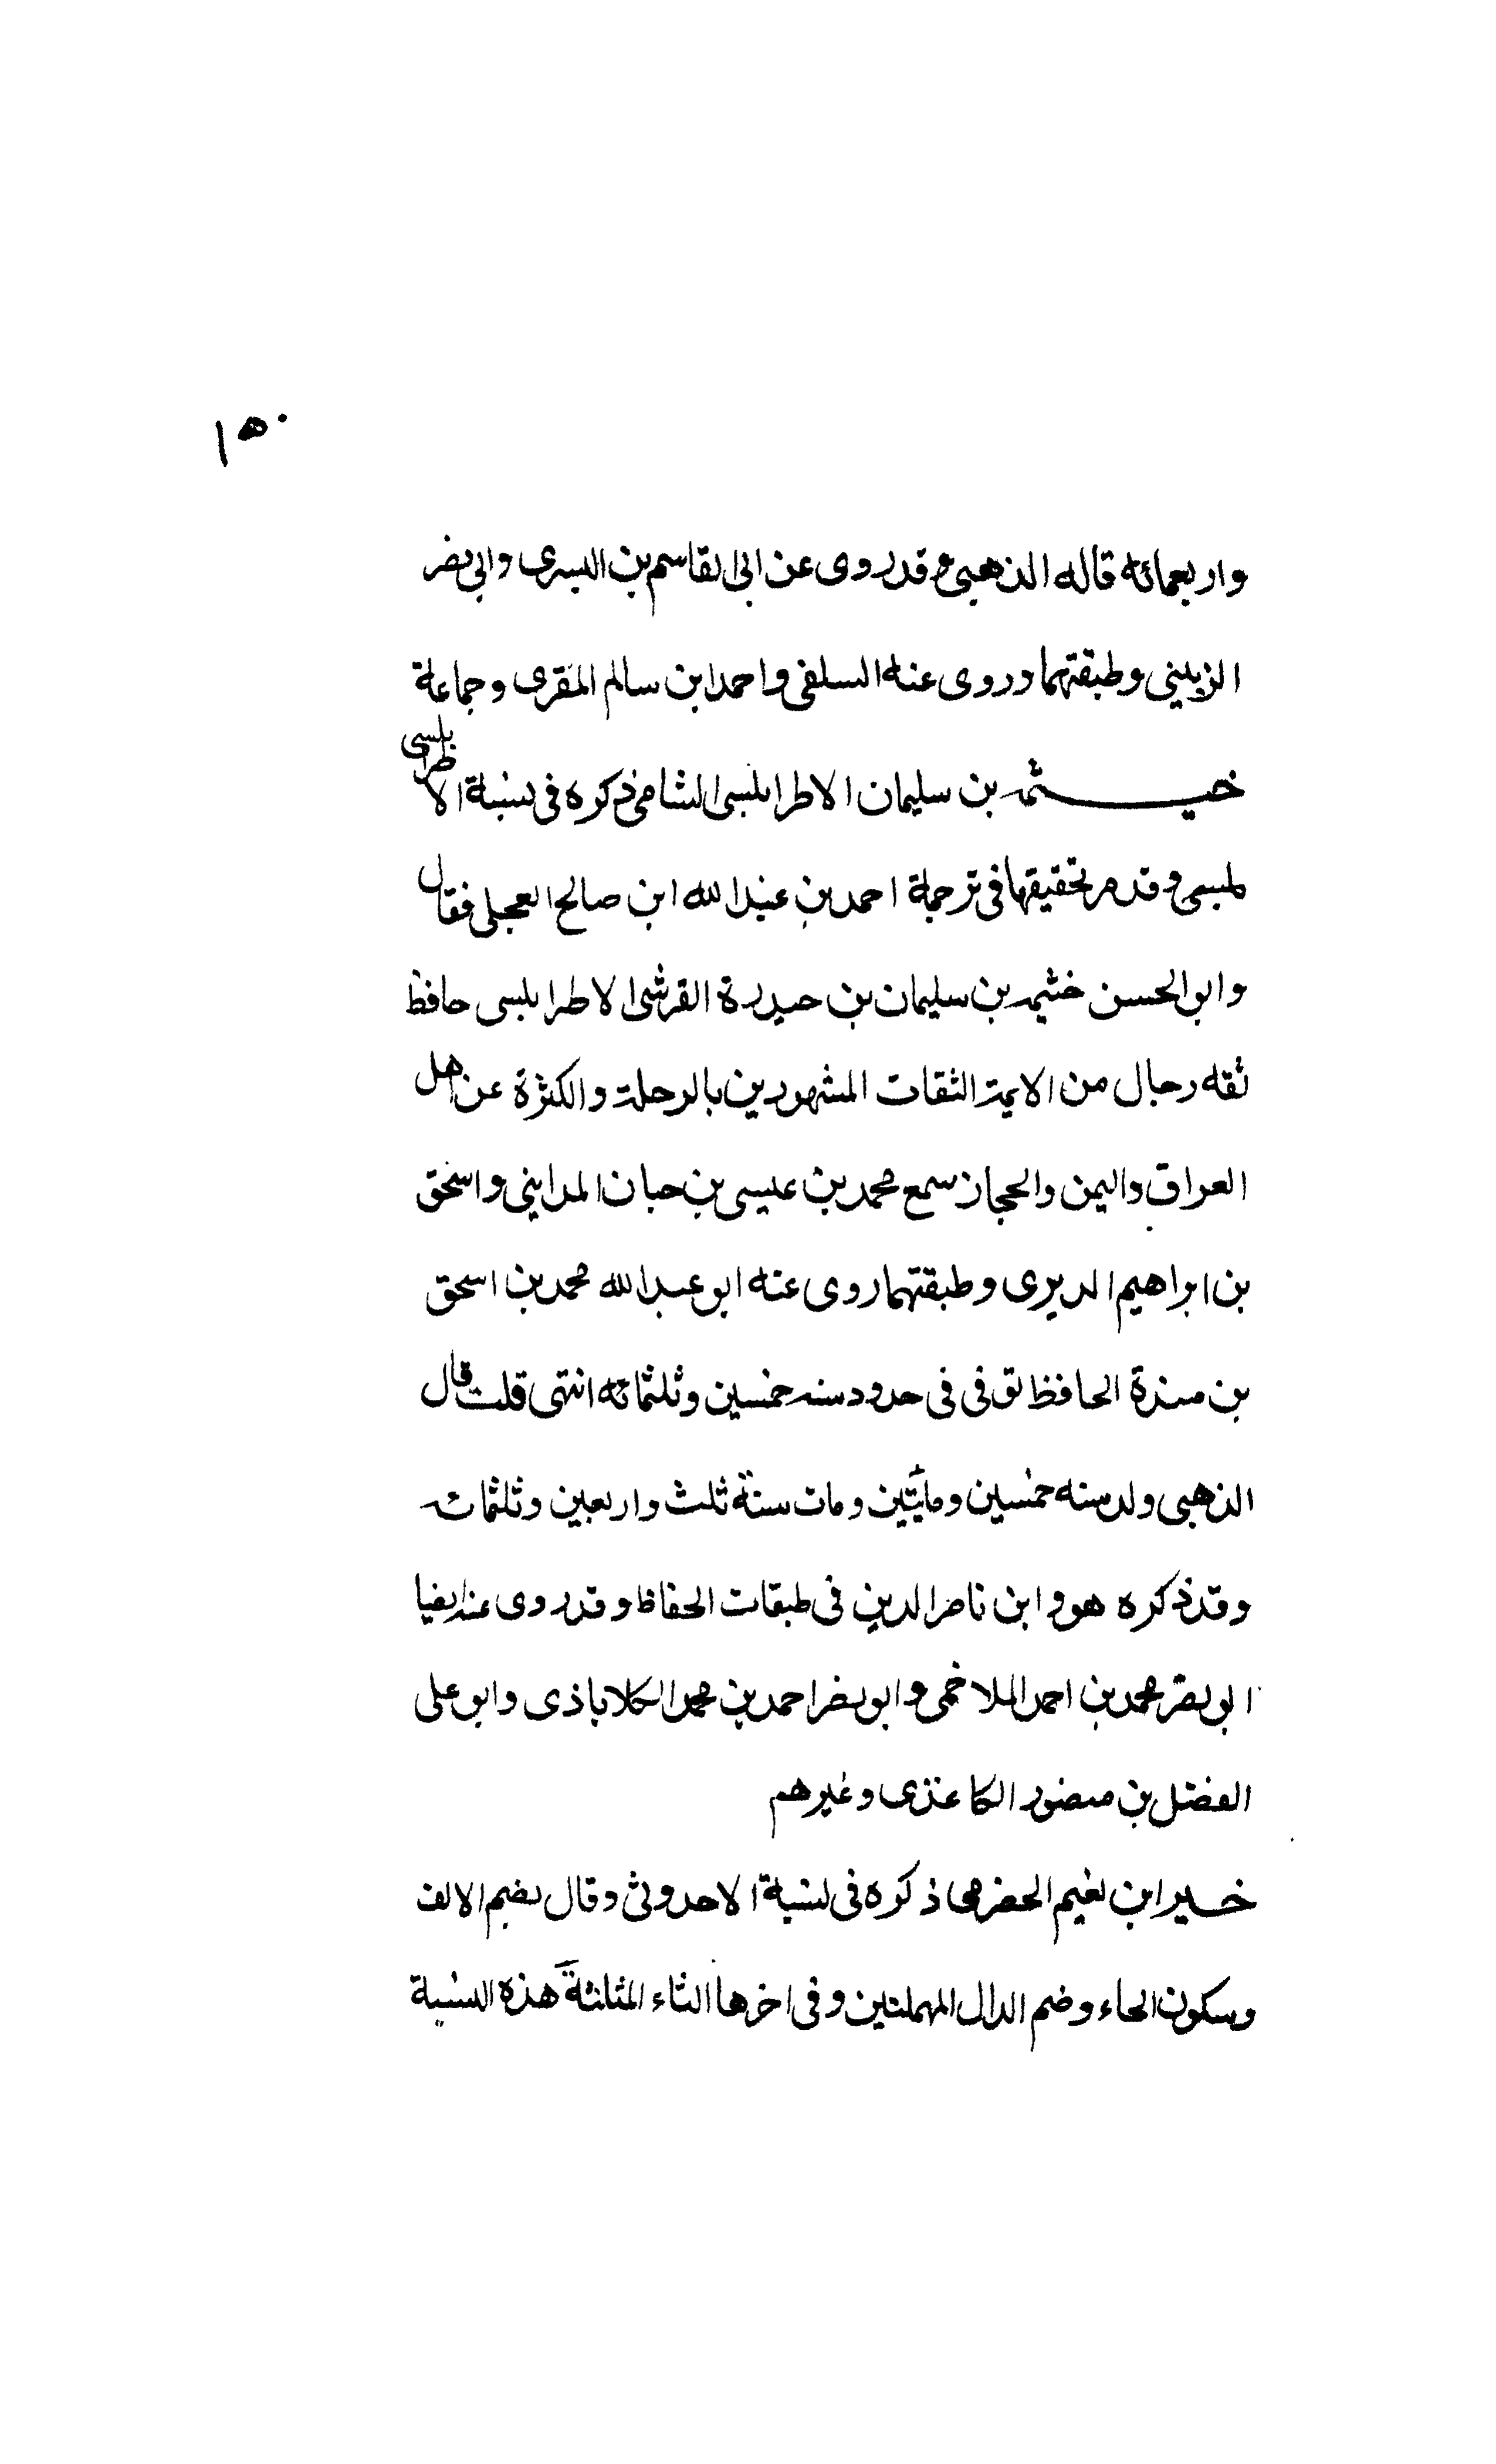 ١٥٠
واربعمائه قاله الذهبى وقد روى عن ابى لقاسم بن البسرى وابى نصر
الزينبي وطبقتهما وروى عنه السلفى واحمد ابن سالم المقرى وجماعة
خيثمه بن سليمان الاطرابلسى الشامى ذكره فى نسبة الاطرابلسى
بلسى وقد مر تحقيقها فى ترجمة احمد بن عبد الله ابن صالح العجلى فقال
وابو الحسن خثيمه بن سليمان بن حيدرة القرشى الاطرابلسى حافظ
ثقه رحال من الايمة الثقات المشهورين بالرحلة والكثرة عن اهل
العراق واليمن والحجاز سمع محمد بن عيسى بن حبان المدايني واسحق
بن ابراهيم الديرى وطبقتهما روى عنه ابو عبد الله محمد بن اسحق
بن مندة الحافظ توفى فى حدود سنه خمسين وثلثمائه انتهى قلت قال
الذهبى ولد سنه خمسين ومائتين ومات سنة ثلث واربعين وثلثمائه
وقد ذكره هو وابن ناصر الدين فى طبقات الحفاظ وقد روى عنه ايضا
ابو نصر محمد بن احمد الملاحمى وابو نصر احمد بن محمد الكلاباذى وابو على
الفضل بن منصور الكاغذى وغيرهم
خير ابن نعيم الحضرمى ذكره فى نسبة الاحدوثى وقال بضم الالف
وسكون الحاء وضم الدال المهملتين وفى اخرها الثاء المثلثة هذه النسبة